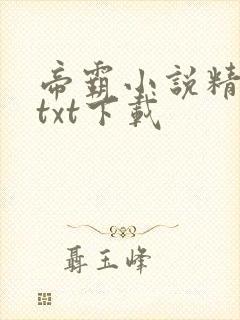 帝霸小說精
txt下載
聶玉峰